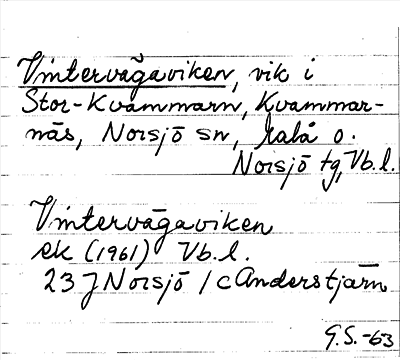 Vintervägaviken, vik i
Stor-Kvammarn, Kvammar-
näs, Norsjö sn, Malå o.
Norsjö tg, Vb.l.
Vintervägaviken
ek (1961) Vb.l.
23 J Norsjö / c Anderstjärn
G.S.-63